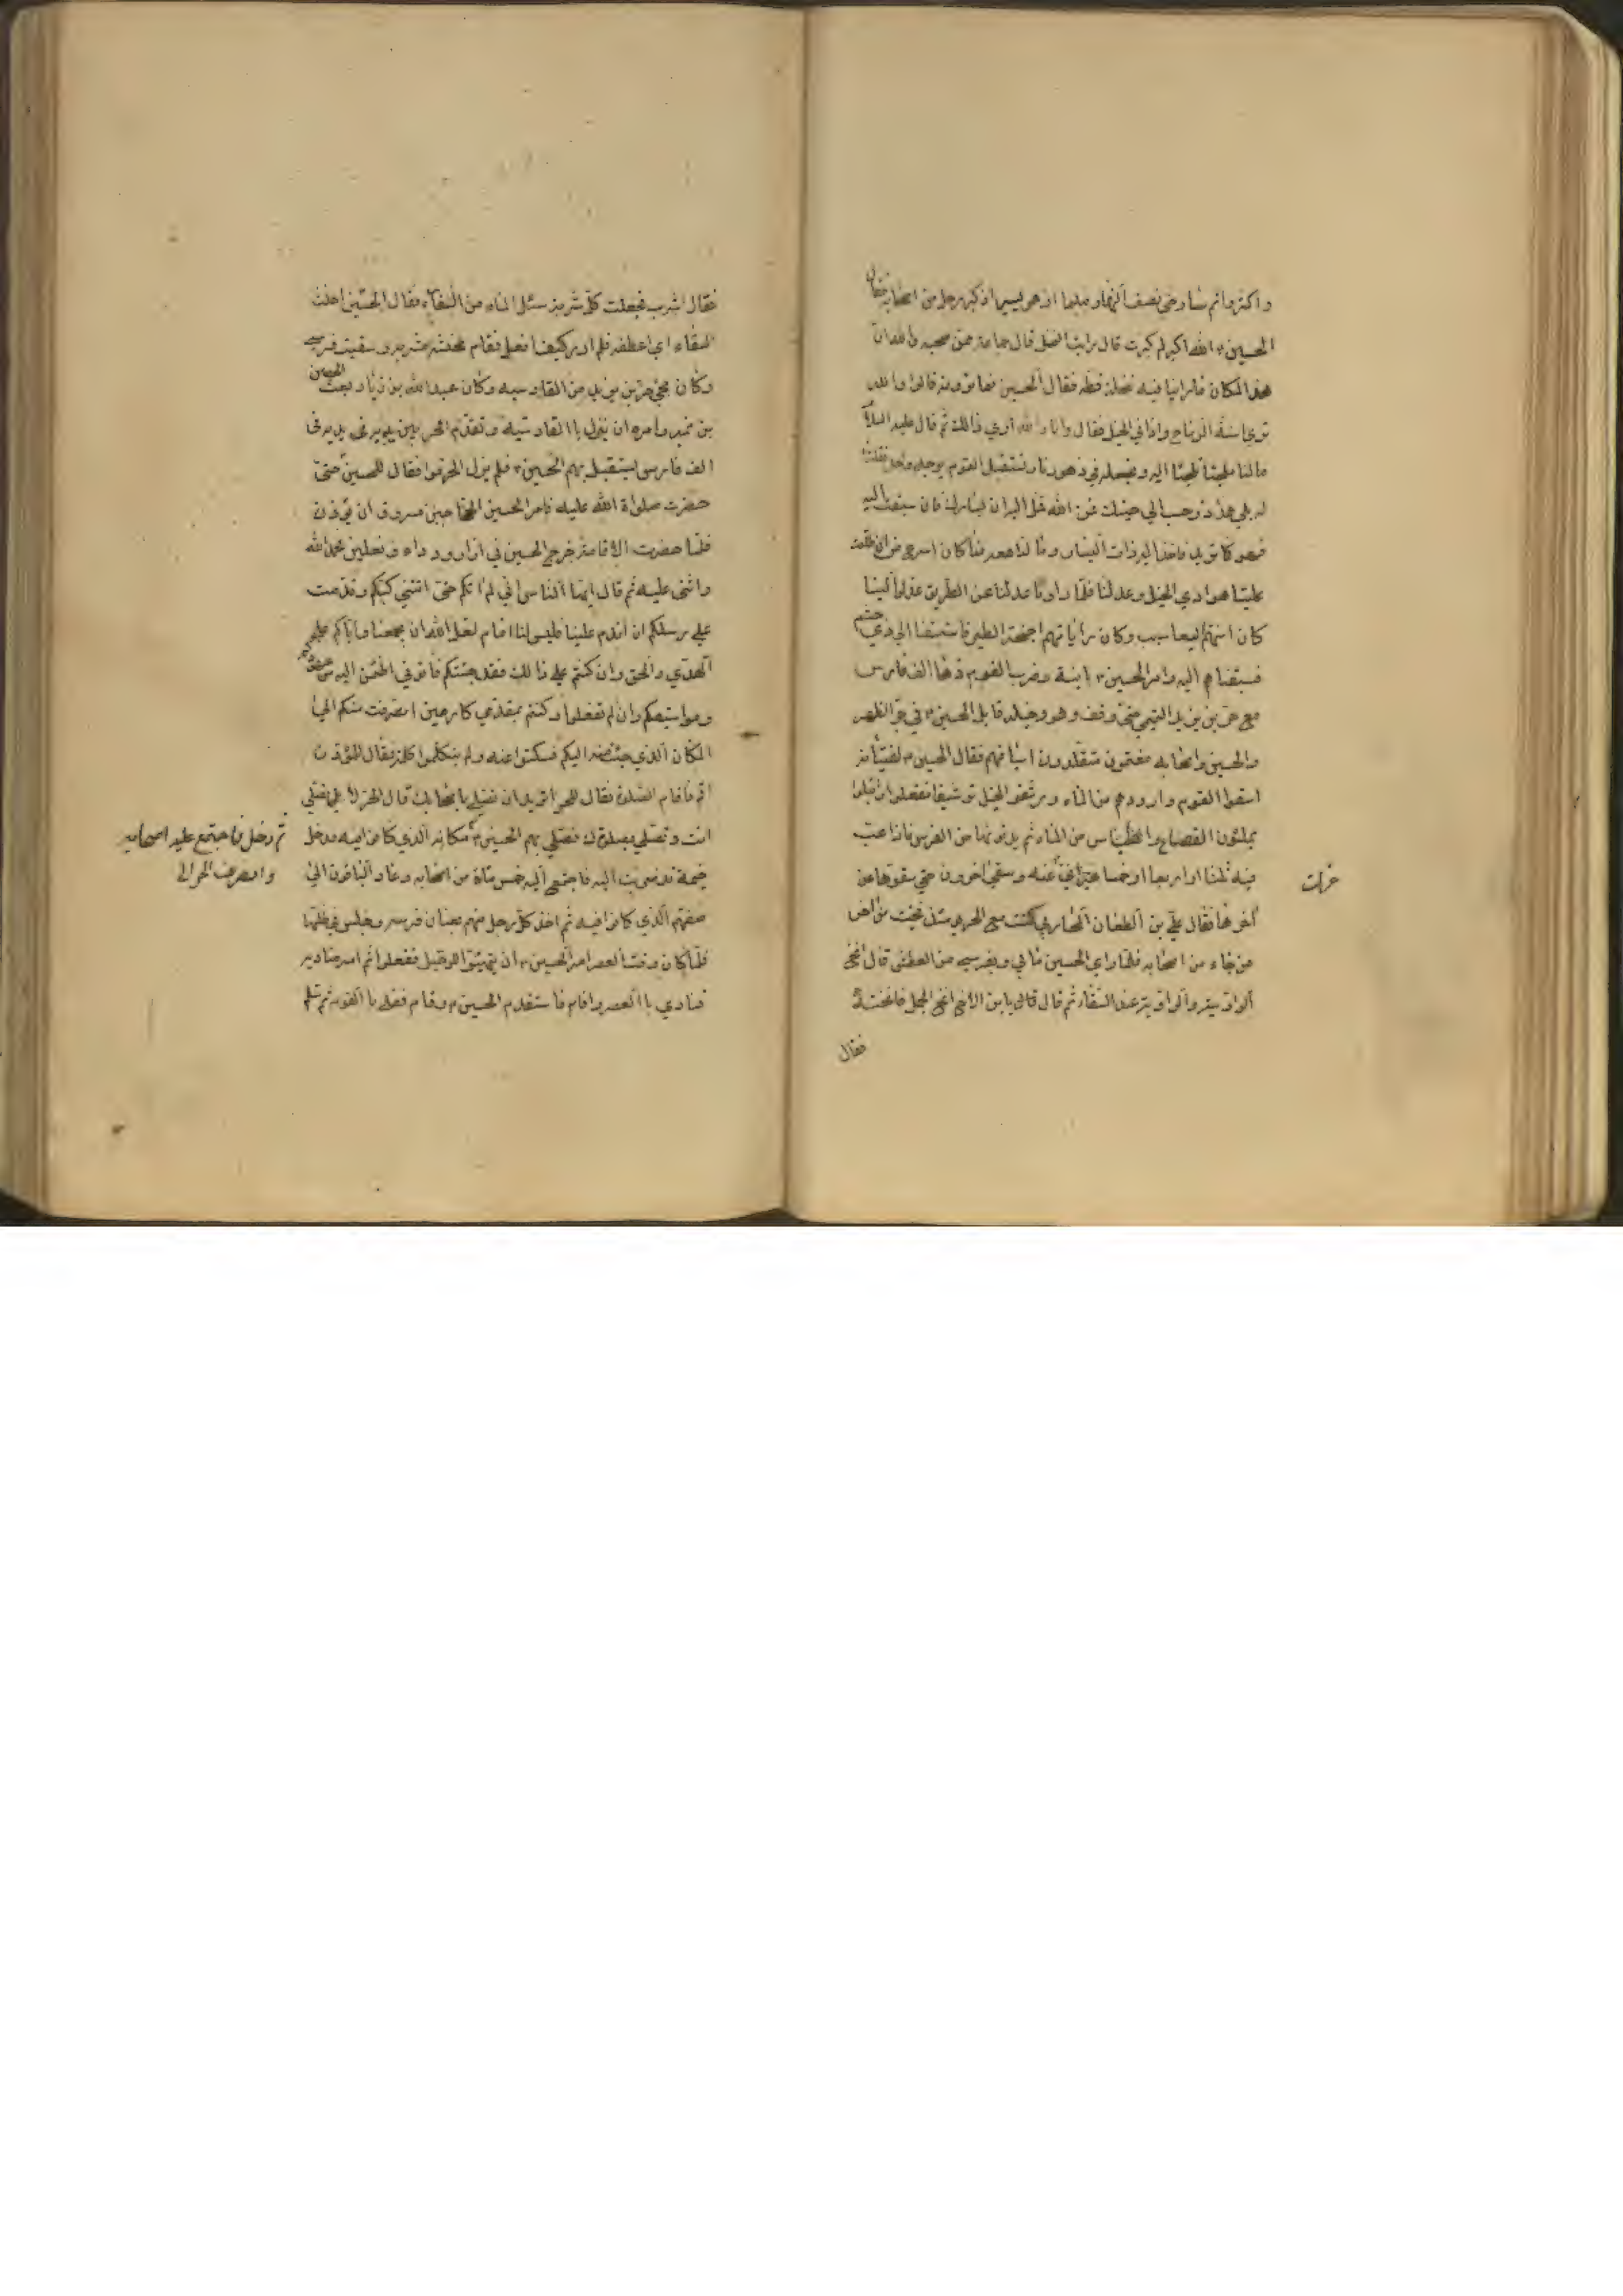 واكثروا ثم سار حتى نصف النهار فبينما هو يسير اذ كبر رجل من اصحابه فقال
الحسين الله اكبر لم كبرت قال رايت النخل قال جماعة ممن صحبه والله ان
هذا المكان ما راينا فيه نخلة قط فقال الحسين فما ترونه قالوا والله
نراه اسنة الرماح واذان الخيل فقال وانا والله اري ذالك ثم قال عليه السلام
ما لنا ملجئا نلجئا اليه ونجعله في ظهورنا ونستقبل القوم بوجه واحد فقلنا
له بلي هذا ذو حسم الي جنبك عن الله تمل اليه عن يسارك فان سبقت اليه
فهو كما تريد فاخذ اليه ذات اليسار وملنا معه فما كان اسرع من ان طلعت
علينا هوادي الخيل وعدلنا فلما راونا عدلنا عن الطريق عدلوا الينا
كان اسنتهم اليعاسيب وكان راياتهم اجنحة الطير فاستبقنا الي ذي حسم
فسبقناهم اليه وامر الحسين ابنية وضرب القوم زهاء الف فارس
مع حر بن يزيد التميمي حتى وقف هو وخيله قابل الحسين في حر الظهر
والحسين واصحابه معتمون متقلدون اسيافهم فقال الحسين لفتيانه
اسقوا القوم واروهم من الماء ورشفوا الخيل ترشيفا ففعلوا واقبلوا
يملئون القصاع والطساس من الماء ثم يدنونها من الفرس فاذا عب
فيه ثلثا او اربعا او خمسا عزلت عنه وسقي اخرون حتي سقوها عن
عزلت
اخرها فقال علي بن الطعان المحاربي كنت مع الحر يومئذ فجئت من اخر
من جاء من اصحابه فلما راي الحسين ما بي وبفرسي من العطش قال انخ
الراوية والراوية عندي السقاء ثم قال يا بن الاخ انخ الجمل فانخته
فقال
فقال اشرب فجعلت كلما شربت سئل الماء من السقاء فقال الحسين اخنث
السقاء اي اعطفه فلم ادر كيف افعل فقام فخنثه فشربت وسقيت فرسي
وكان مجئ حر بن يزيد من القادسية وكان عبيد الله بن زياد بعث الحصين
بن نمير وامره ان ينزل باالقادسية وتقدم الحر بين يديه في
الف فارس يستقبل بهم الحسين فلم يزل الحر موافقا للحسين حتى
حضرت صلواة الله عليه فامر الحسين الحجاج بن مسروق ان يؤذن
فلما حضرت الاقامة خرج الحسين في ازار ورداء ونعلين فحمد الله
واثنى عليه ثم قال ايها الناس اني لم اتكم حتى اتتني كتبكم وقدمت
علي رسلكم ان اقدم علينا فليس لنا امام لعل الله ان يجمعنا واياكم على
الهدي والحق وان كنتم على ذالك فقد جئتكم فاعطوني ما اطمئن اليه من عهودكم
ومواثيقكم وان لم تفعلوا وكنتم بمقدمي كارهين انصرفت عنكم الي
المكان الذي جئت منه اليكم فسكتوا عنه ولم يتكلموا كلمة فقال للمؤذن
اقم فاقام الصلوة فقال للحر اتريد ان تصلي باصحابك قال الحر لا بل تصلي
انت ونصلي بصلوتك فصلي بهم الحسين مكانه الذي كانوا فيه ودخل
ثم دخل فاجتمع عليه اصحابه
وانصرف الحر الي
خيمة قد ضربت اليه فاجتمع اليه خمس مائة من اصحابه وعاد الباقون الي
صفهم الذي كانوا فيه ثم اخذ كل رجل منهم بعنان فرسه وجلس في ظلها
فلما كان وقت العصر امر الحسين ان يتهيئوا للرحيل ففعلوا ثم امر مناديه
فنادي باالعصر واقام فاستقدم الحسين وقام فصلي باالقوم ثم سلم